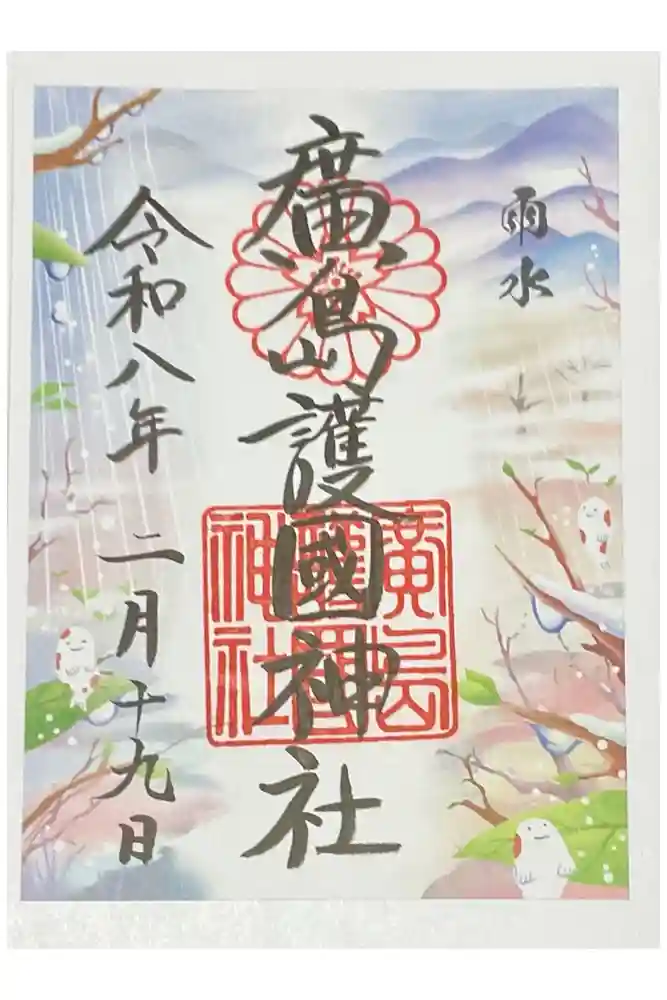 雨水
廣島護國神社
廣島
護國
神社
令和八年 二月十九日